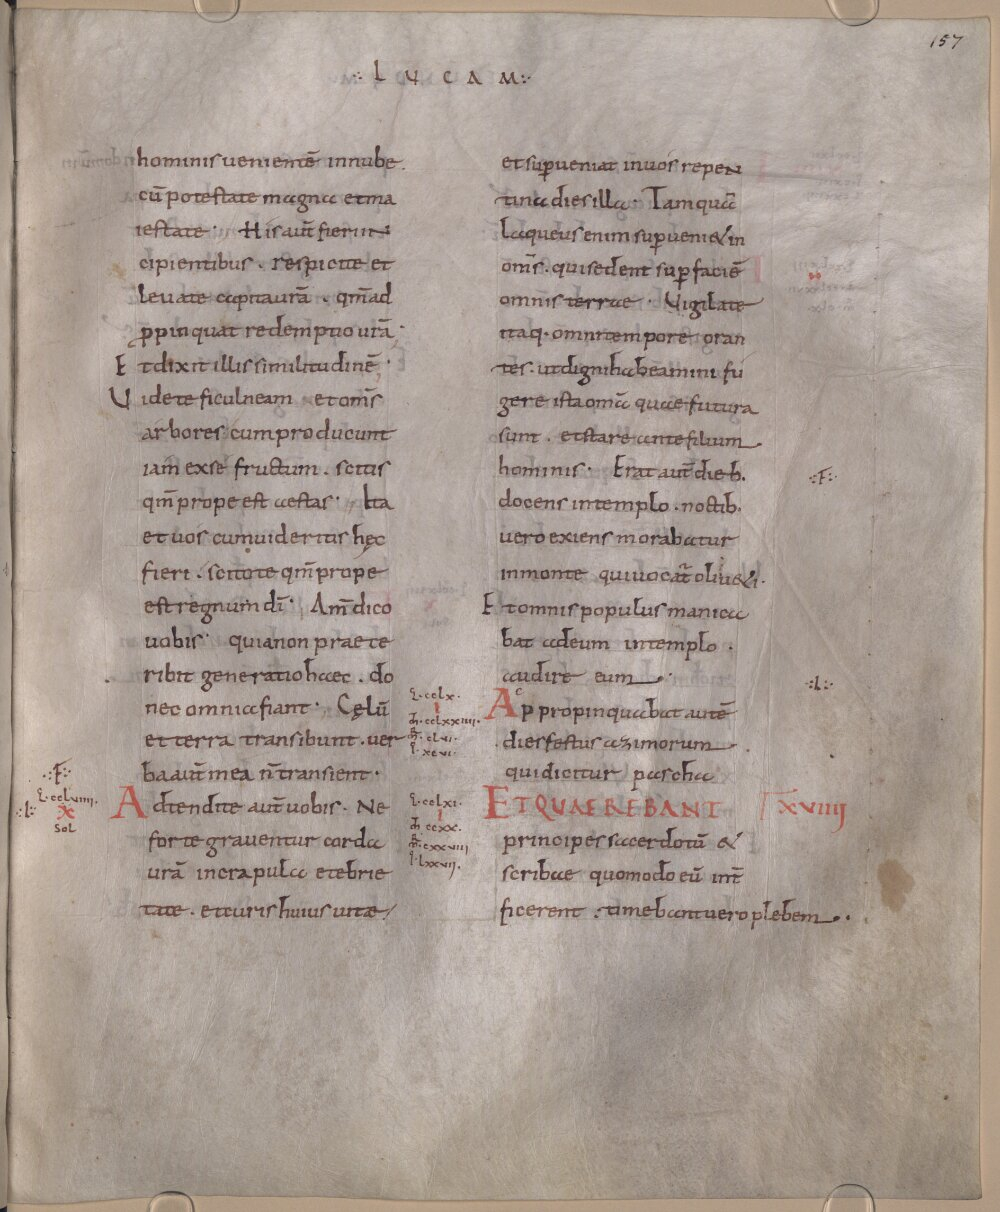 157
LUCAM
hominis venientē in nube
cū potestate magna et ma
iestate · His aut̄ fieri in
cipientibus · respicite et
levate capita urā · qm̄ ad
p̱pinquat redemptio urā ·
Et dixit illis similitudinē ·
Videte ficulneam et om̄s
arbores cum producunt
iam ex se fructum · scitis
qm̄ prope est aestas · Ita
et uos cum uideritis hęc
fieri · scitote qm̄ prope
est regnum dī · Am̄ dico
uobis · quia non praete
ribit generatio haec · do
nec omnia fiant · Cęlū
et terra transibunt · uer
ba aut̄ mea n̄ transient ·
·F·
L·cclviiii·
·L·
X
SOL
Adtendite aut̄ uobis · Ne
forte graventur corda
urā in crapula et ebrie
tate · et curis huius uitae
L·cclx·
I
Iħ·cclxxiiii·
M̄·clvi·
I·xcvi·
L·cclxi·
I
Iħ·ccxx·
M̄·cxxviii
I·lxxvii·
et sup̱ueniat in uos repen
tina dies illa · Tamquā
laqueus enim sup̱ueniet in
om̄s · qui sedent sup̱ faciē
omnis terrae · Vigilate
itaq· omni tempore oran
tes · ut digni habeamini fu
gere ista omā quae futura
sunt · et stare ante filium
hominis · Erat aut̄ dieb·
·F·
docens in templo · noctib·
uero exiens morabatur
in monte qui uocat̄ oliueti·
Et omnis populus manica
bat ad eum in templo ·
audire eum ·
·L·
Appropinquabat autē
dies festus azimorum
qui dicitur pascha
ET QUAEREBANT XVIIII
principes sacerdotū &
scribae quomodo eū int̄
ficerent · timebant uero plebem ··